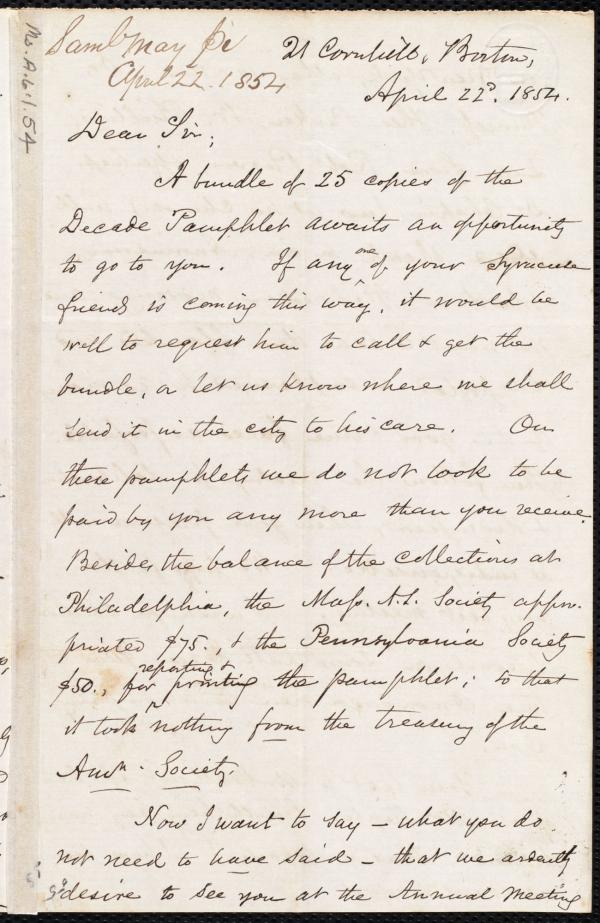 Ms. A. 6. 1. 54
Saml May Jr
April 22. 1854
21 Cornhill, Boston,
April 22d. 1854.
Dear Sir,
A bundle of 25 copies of the
Decade Pamphlet awaits an opportunity
to go to you. If any one of your Syracuse
friends is coming this way, it would be
well to request him to call & get the
bundle, or let us know where we shall
send it in the city to his care. On
these pamphlets we do not look to be
paid by you any more than you receive.
Besides the balance of the collections at
Philadelphia, the Mass. A.S. Society appro-
priated $75., & the Pennsylvania Society
$50., for reporting & printing the pamphlet; so that
it took nothing from the treasury of the
Amn. Society.
Now I want to say – what you do
not need to have said – that we ardently
desire to see you at the Annual Meeting